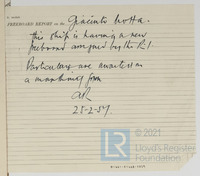 FREEBOARD REPORT on the Giacinto Motta.
This ship is having a new
freeboard assigned by the R.I.
Particulars are awaited on
a marking form
AR
25-2-57.
© 2021
LR
Lloyd's Register
Foundation